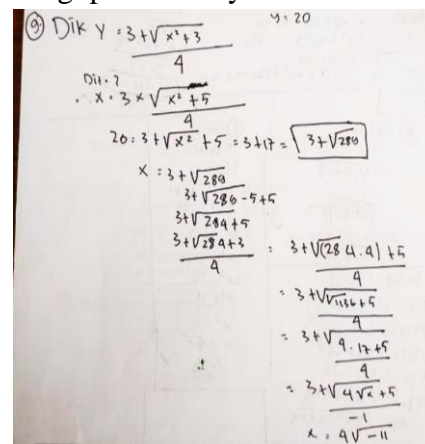 9. Dik y = 3 + √x²+3 / 4
y = 20
Dit = ?
x = 3 + √x² + 5 / 4
20 = 3 + √x² + 5 = 3+17 = 3+√289
x = 3+√289
3+√289 - 5+5
3+√284+5
3+√284+3 / 4 = 3+√(284.4) + 5 / 4
= 3+√√1136+5 / 4
= 3+√4.17+5 / 4
= 3+√4√x+5 / -1
x = 4√-11